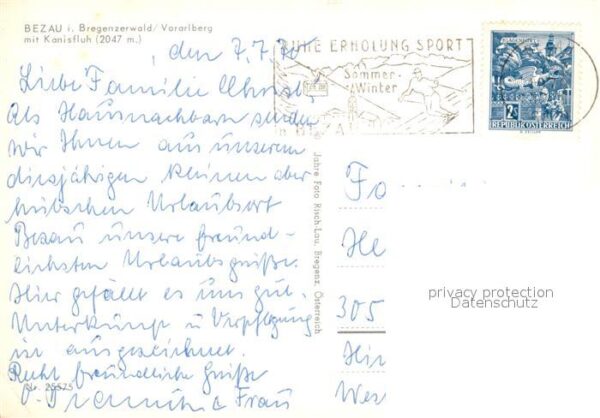 BEZAU i. Bregenzerwald/Vorarlberg
mit Kanisfluh (2047 m.)
den 7.7.70
Liebe Familie
Als Hausnachbarn senden
wir Ihnen aus unserem
diesjährigen kleinen aber
hübschen Urlaubsort
Bezau unsere freund-
lichsten Urlaubsgrüße.
Hier gefällt es uns gut.
Unterkunft u Verpflegung
ist ausgezeichnet.
Recht freundliche Grüße
Nr. 25575
Frau
Jahre Foto Risch-Lau, Bregenz, Österreich
RUHE ERHOLUNG SPORT
Sommer-
Winter
BEZAU
2S
REPUBLIK ÖSTERREICH
Fa
He
305
privacy protection
Datenschutz
Hir
Wes